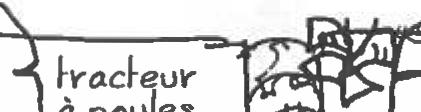 tracteur
à poules